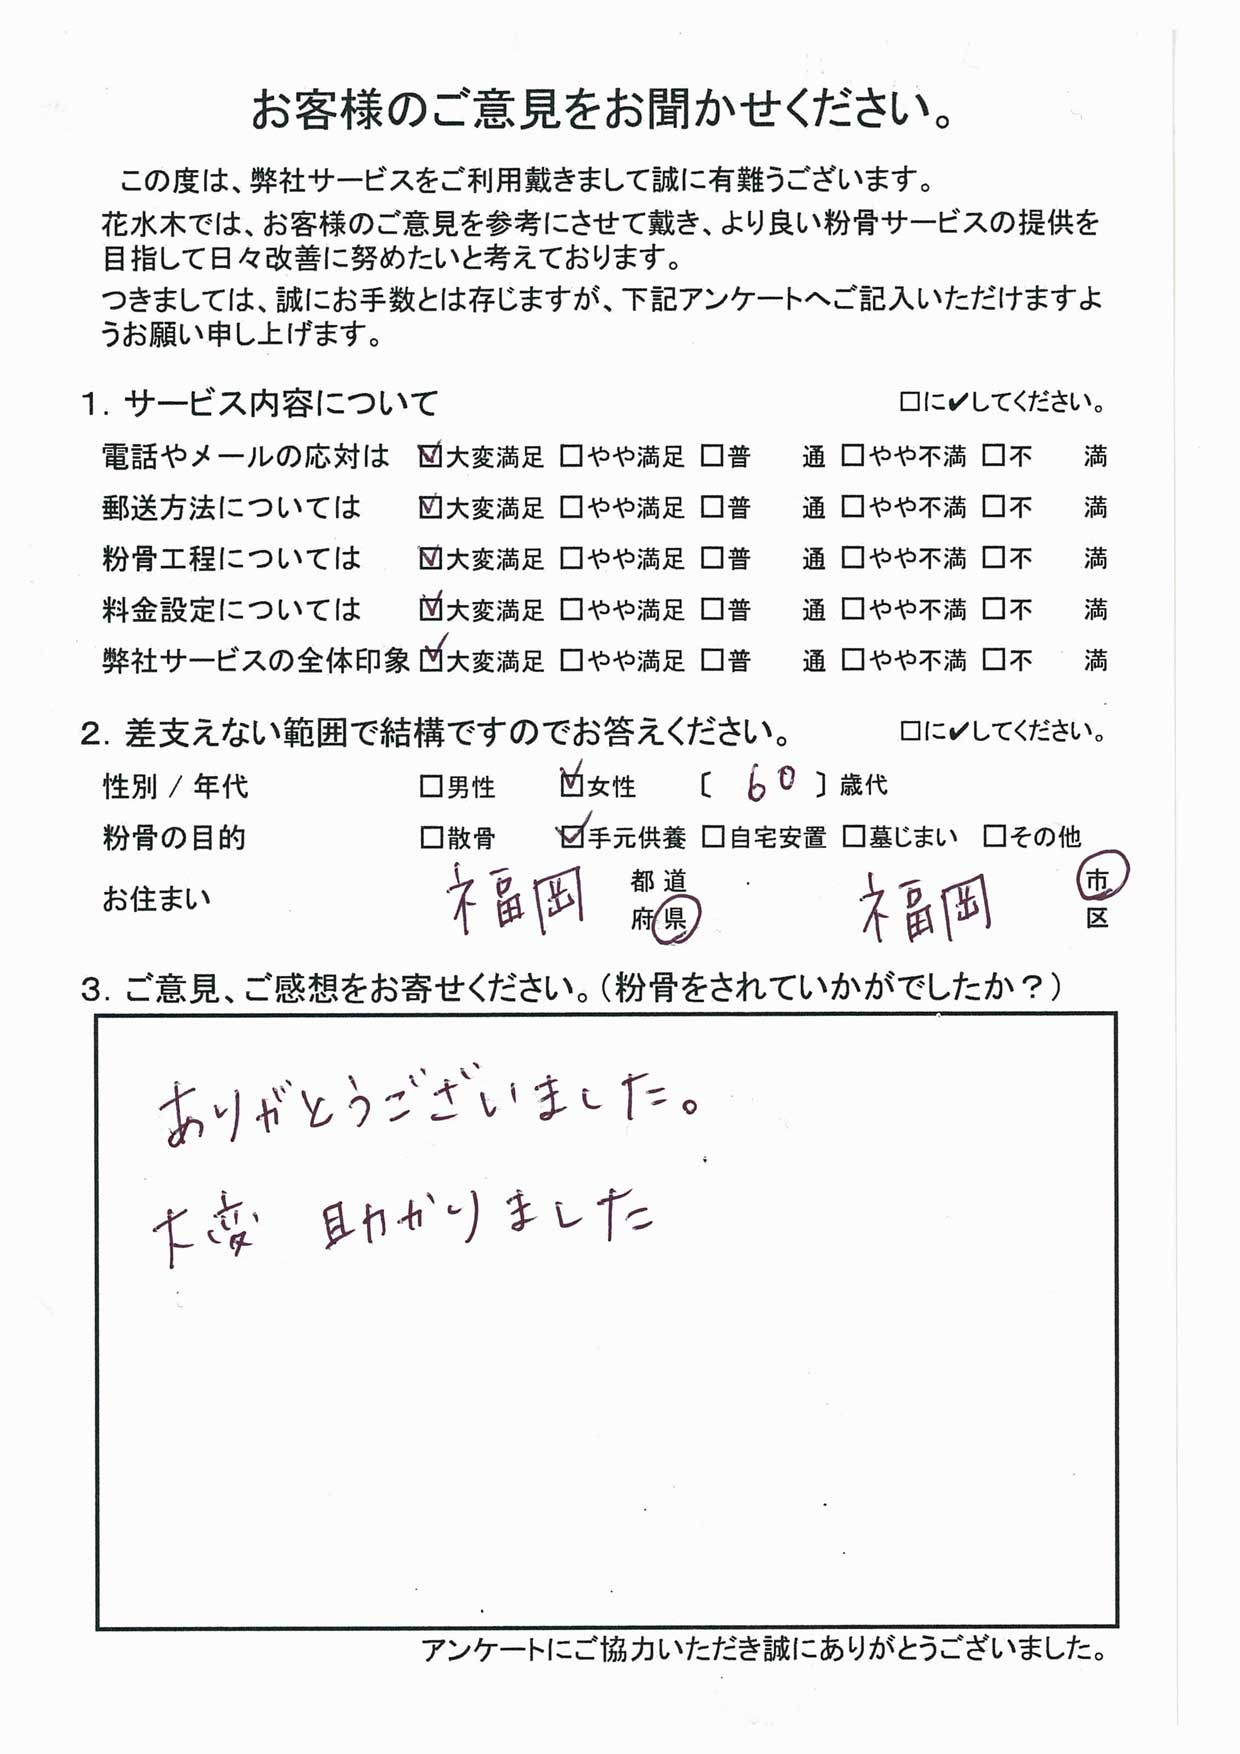 お客様のご意見をお聞かせください。
この度は、弊社サービスをご利用戴きまして誠に有難うございます。
花水木では、お客様のご意見を参考にさせて戴き、より良い粉骨サービスの提供を
目指して日々改善に努めたいと考えております。
つきましては、誠にお手数とは存じますが、下記アンケートへご記入いただけますよ
うお願い申し上げます。
1. サービス内容について □に✔してください。
電話やメールの応対は ☑大変満足 □やや満足 □普 通 □やや不満 □不 満
郵送方法については ☑大変満足 □やや満足 □普 通 □やや不満 □不 満
粉骨工程については ☑大変満足 □やや満足 □普 通 □やや不満 □不 満
料金設定については ☑大変満足 □やや満足 □普 通 □やや不満 □不 満
弊社サービスの全体印象 ☑大変満足 □やや満足 □普 通 □やや不満 □不 満
2. 差支えない範囲で結構ですのでお答えください。 □に✔してください。
性別 / 年代 □男性 ☑女性 〔 60 〕歳代
粉骨の目的 □散骨 ☑手元供養 □自宅安置 □墓じまい □その他
お住まい 福岡 都 道 府 県 福岡 市 区
3. ご意見、ご感想をお寄せください。(粉骨をされていかがでしたか?)
ありがとうございました。
大変 助かりました
アンケートにご協力いただき誠にありがとうございました。